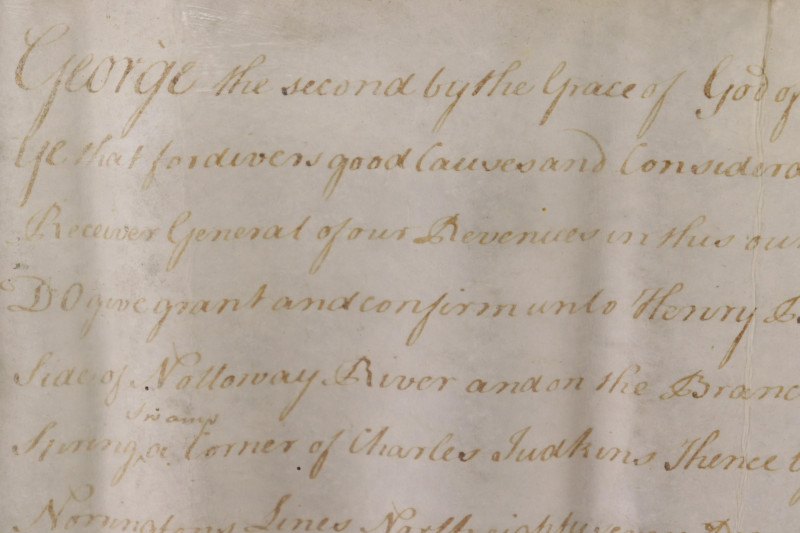 George the second by the Grace of God of
Ye that for divers good Causes and Considera
Receiver General of our Revenues in this our
DO give grant and confirm unto Henry B
Side of Nottoway River and on the Branc
Swamp
a Corner of Charles Judkins Thence
Norningtons Lines North eighty seven De